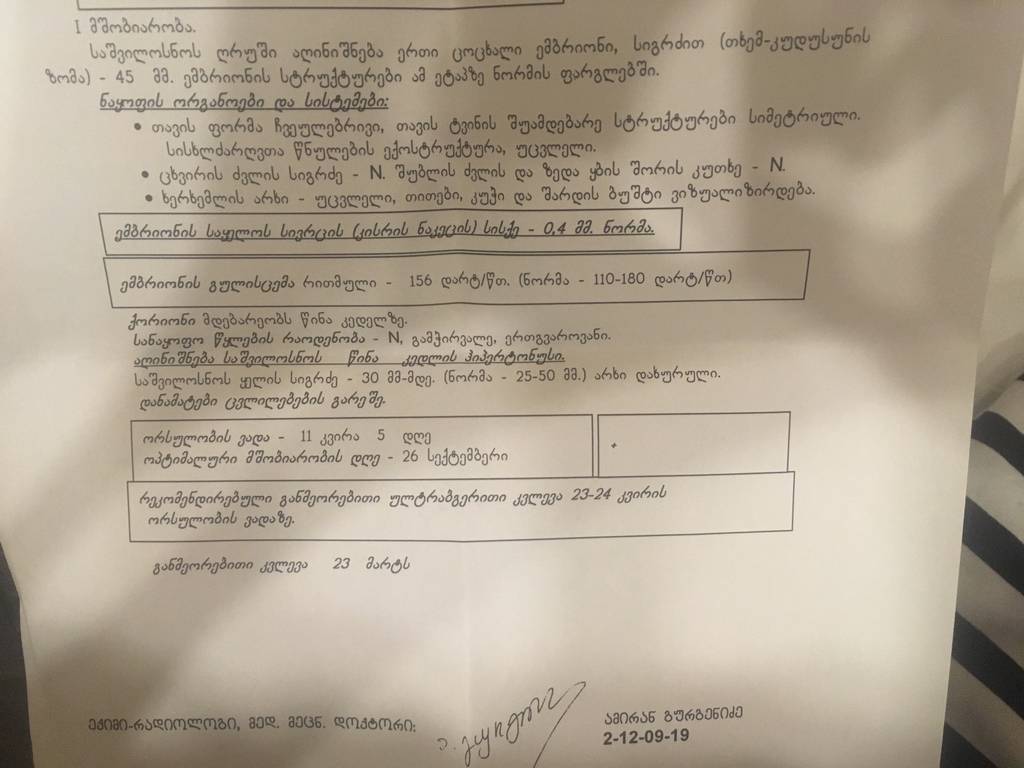 I მშობიარობა.
საშვილოსნოს ღრუში აღინიშნება ერთი ცოცხალი ემბრიონი, სიგრძით (თხემ-კუდუსუნის
ზომა) - 45 მმ. ემბრიონის სტრუქტურები ამ ეტაპზე ნორმის ფარგლებში.
ნაყოფის ორგანოები და სისტემები:
• თავის ფორმა ჩვეულებრივი, თავის ტვინის შუამდებარე სტრუქტურები სიმეტრიული.
სისხლძარღვთა წნულების ექოსტრუქტურა, უცვლელი.
• ცხვირის ძვლის სიგრძე - N. შუბლის ძვლის და ზედა ყბის შორის კუთხე - N.
• ხერხემლის არხი - უცვლელი, თითები, კუჭი და შარდის ბუშტი ვიზუალიზირდება.
ემბრიონის საყელოს სივრცის (კისრის ნაკეცის) სისქე - 0,4 მმ. ნორმა.
ემბრიონის გულისცემა რითმული - 156 დარტ/წთ. (ნორმა - 110-180 დარტ/წთ)
ქორიონი მდებარეობს წინა კედელზე.
სანაყოფო წყლების რაოდენობა - N, გამჭირვალე, ერთგვაროვანი.
აღინიშნება საშვილოსნოს წინა კედლის ჰიპერტონუსი.
საშვილოსნოს ყელის სიგრძე - 30 მმ-მდე. (ნორმა - 25-50 მმ.) არხი დახურული.
დანამატები ცვლილებების გარეშე.
ორსულობის ვადა - 11 კვირა 5 დღე
ოპტიმალური მშობიარობის დღე - 26 სექტემბერი
რეკომენდირებული განმეორებითი ულტრაბგერითი კვლევა 23-24 კვირის
ორსულობის ვადაზე.
განმეორებითი კვლევა 23 მარტს
ექიმი-რადიოლოგი, მედ. მეცნ. დოქტორი:
ამირან გურგენიძე
2-12-09-19